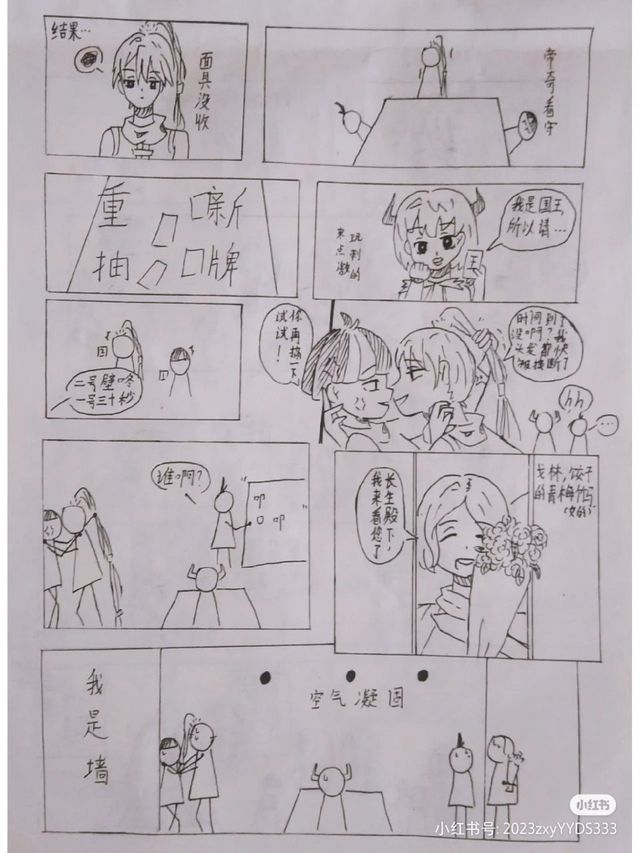 结果…
面具没收
帝奇看守
重新
抽牌
我是国王,
所以请…
王
玩刺的
来点激
二号壁咚
一号三十秒
你再揪一下
试试!
时间到了
没啊?我
头发都快
被揪断了
hh
…
谁啊?
叩
叩
长生殿下,
我来看您了
戈林,饺子
的青梅竹马
(女的)
我是墙
空气凝固
小红书
小红书号: 2023zxyYYDS333